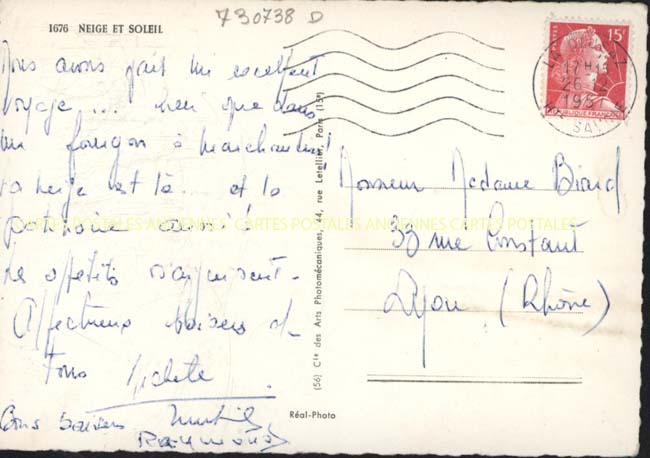 730738 D
1676 NEIGE ET SOLEIL
Nous avons fait un excellent
voyage... bien que dans
un fourgon à marchandises!
la neige est là... et la
patinoire aussi!
Les appétits s'aiguisent.
Affectueux baisers de
Tous Michele
Bons baisers
Raymonde
(56) Cie des Arts Photomécaniques, 44, rue Letellier, Paris (15e)
Réal-Photo
POSTES
15F
RÉPUBLIQUE FRANÇAISE
17 H
26
195
Monsieur Madame Biard
33 rue Constant
Lyon (Rhône)
CARTES POSTALES ANCIENNES CARTES POSTALES ANCIENNES CARTES POSTALES